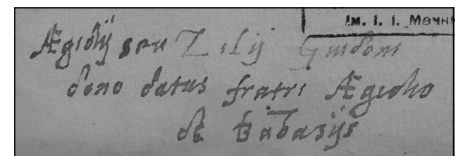 Ім. І. І. Мечни
Ægidij seu Zilij Guidoni
dono datus fratri Ægidio
de Babasijs